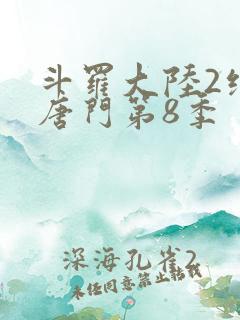 斗羅大陸2絕
唐門第8季
深海孔雀2
未經同意禁止轉載